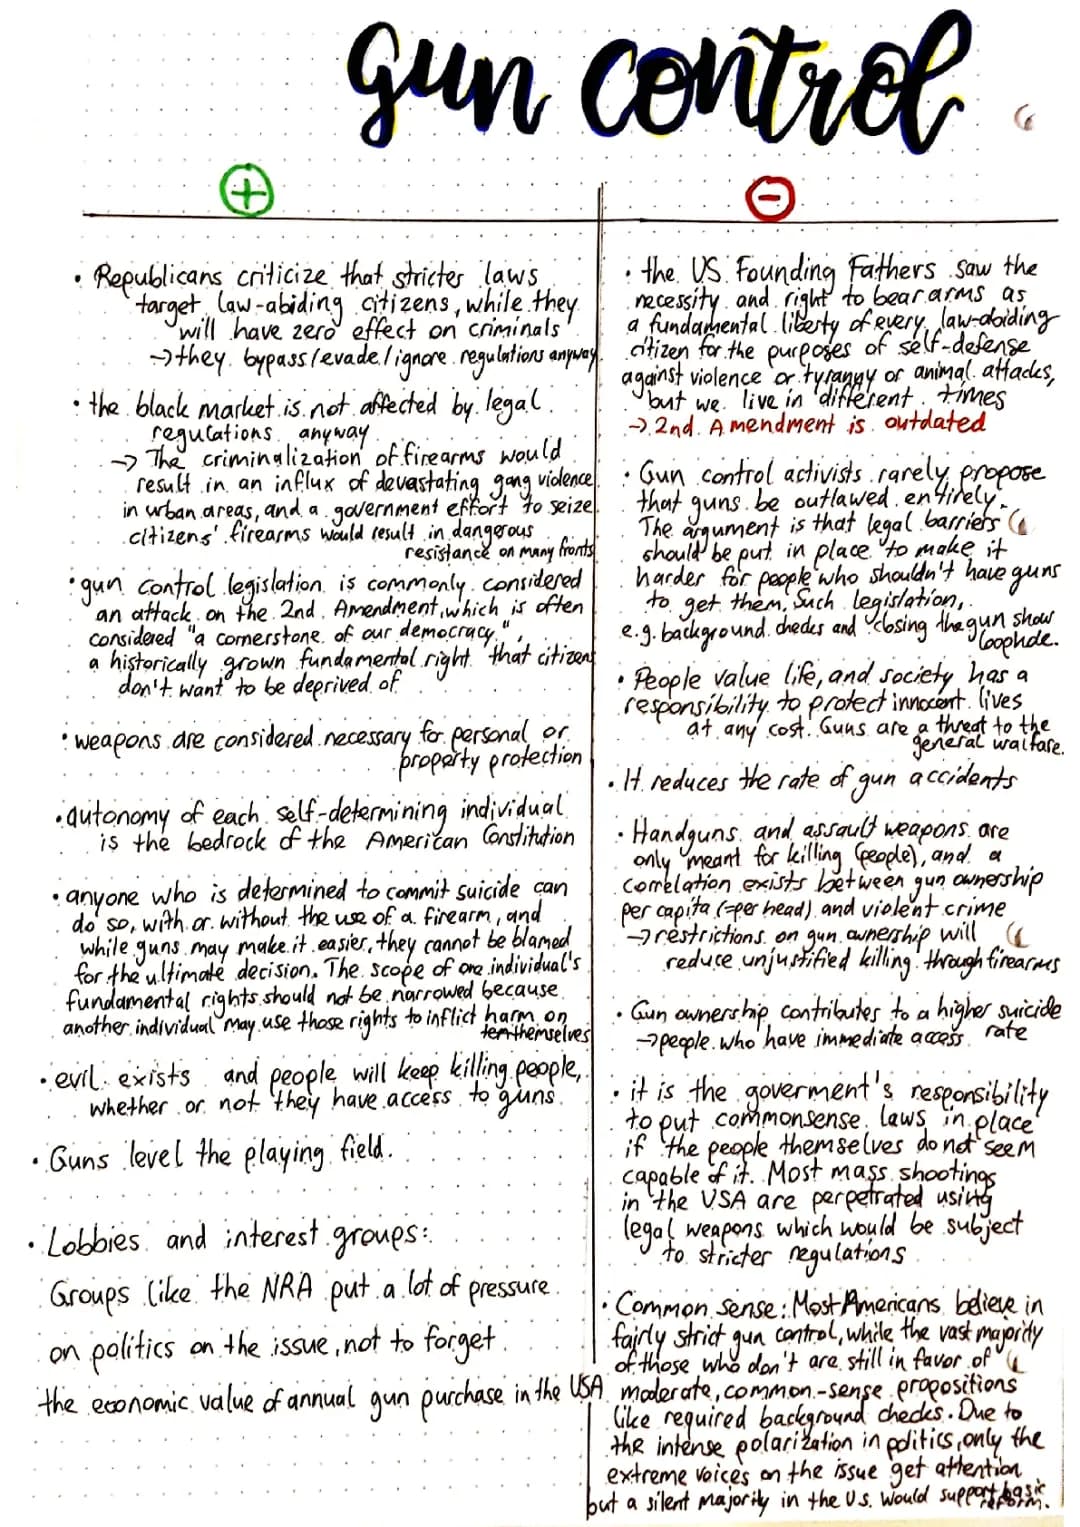 gun control
+
-
• Republicans criticize that stricter laws
target law-abiding citizens, while they
will have zero effect on criminals
→ they bypass/evade/ignore regulations anyway
• the black market is not affected by legal
regulations anyway
→ The criminalization of firearms would
result in an influx of devastating gang violence
in urban areas, and a government effort to seize
citizens' firearms would result in dangerous
resistance on many fronts
• gun control legislation is commonly considered
an attack on the 2nd Amendment, which is often
considered "a cornerstone of our democracy",
a historically grown fundamental right that citizens
don't want to be deprived of
• weapons are considered necessary for personal or
property protection
• autonomy of each self-determining individual
is the bedrock of the American Constitution
• anyone who is determined to commit suicide can
do so, with or without the use of a firearm, and
while guns may make it easier, they cannot be blamed
for the ultimate decision. The scope of one individual's
fundamental rights should not be narrowed because
another individual may use those rights to inflict harm on
themselves
• evil exists and people will keep killing people,
whether or not they have access to guns.
• Guns level the playing field.
• Lobbies and interest groups:
Groups like the NRA put a lot of pressure
on politics on the issue, not to forget
the economic value of annual gun purchase in the USA
• the US Founding Fathers saw the
necessity and right to bear arms as
a fundamental liberty of every law-abiding
citizen for the purposes of self-defense
against violence or tyranny or animal attacks,
but we live in different times
→ 2nd Amendment is outdated
• Gun control activists rarely propose
that guns be outlawed entirely.
The argument is that legal barriers
should be put in place to make it
harder for people who shouldn't have guns
to get them. Such legislation,
e.g. background checks and closing the gun show
loophole.
• People value life, and society has a
responsibility to protect innocent lives
at any cost. Guns are a threat to the
general walfare.
• It reduces the rate of gun accidents
• Handguns and assault weapons are
only meant for killing (people), and a
correlation exists between gun ownership
per capita (=per head) and violent crime
→ restrictions on gun ownership will
reduce unjustified killing through firearms
• Gun ownership contributes to a higher suicide
rate
→ people who have immediate access
• it is the goverment's responsibility
to put commonsense laws in place
if the people themselves do not seem
capable of it. Most mass shootings
in the USA are perpetrated using
legal weapons which would be subject
to stricter regulations
• Common sense: Most Americans believe in
fairly strict gun control, while the vast majority
of those who don't are still in favor of
moderate, common-sense propositions
like required background checks. Due to
the intense polarization in politics, only the
extreme voices on the issue get attention
but a silent majority in the U.S. would support basic
reform.